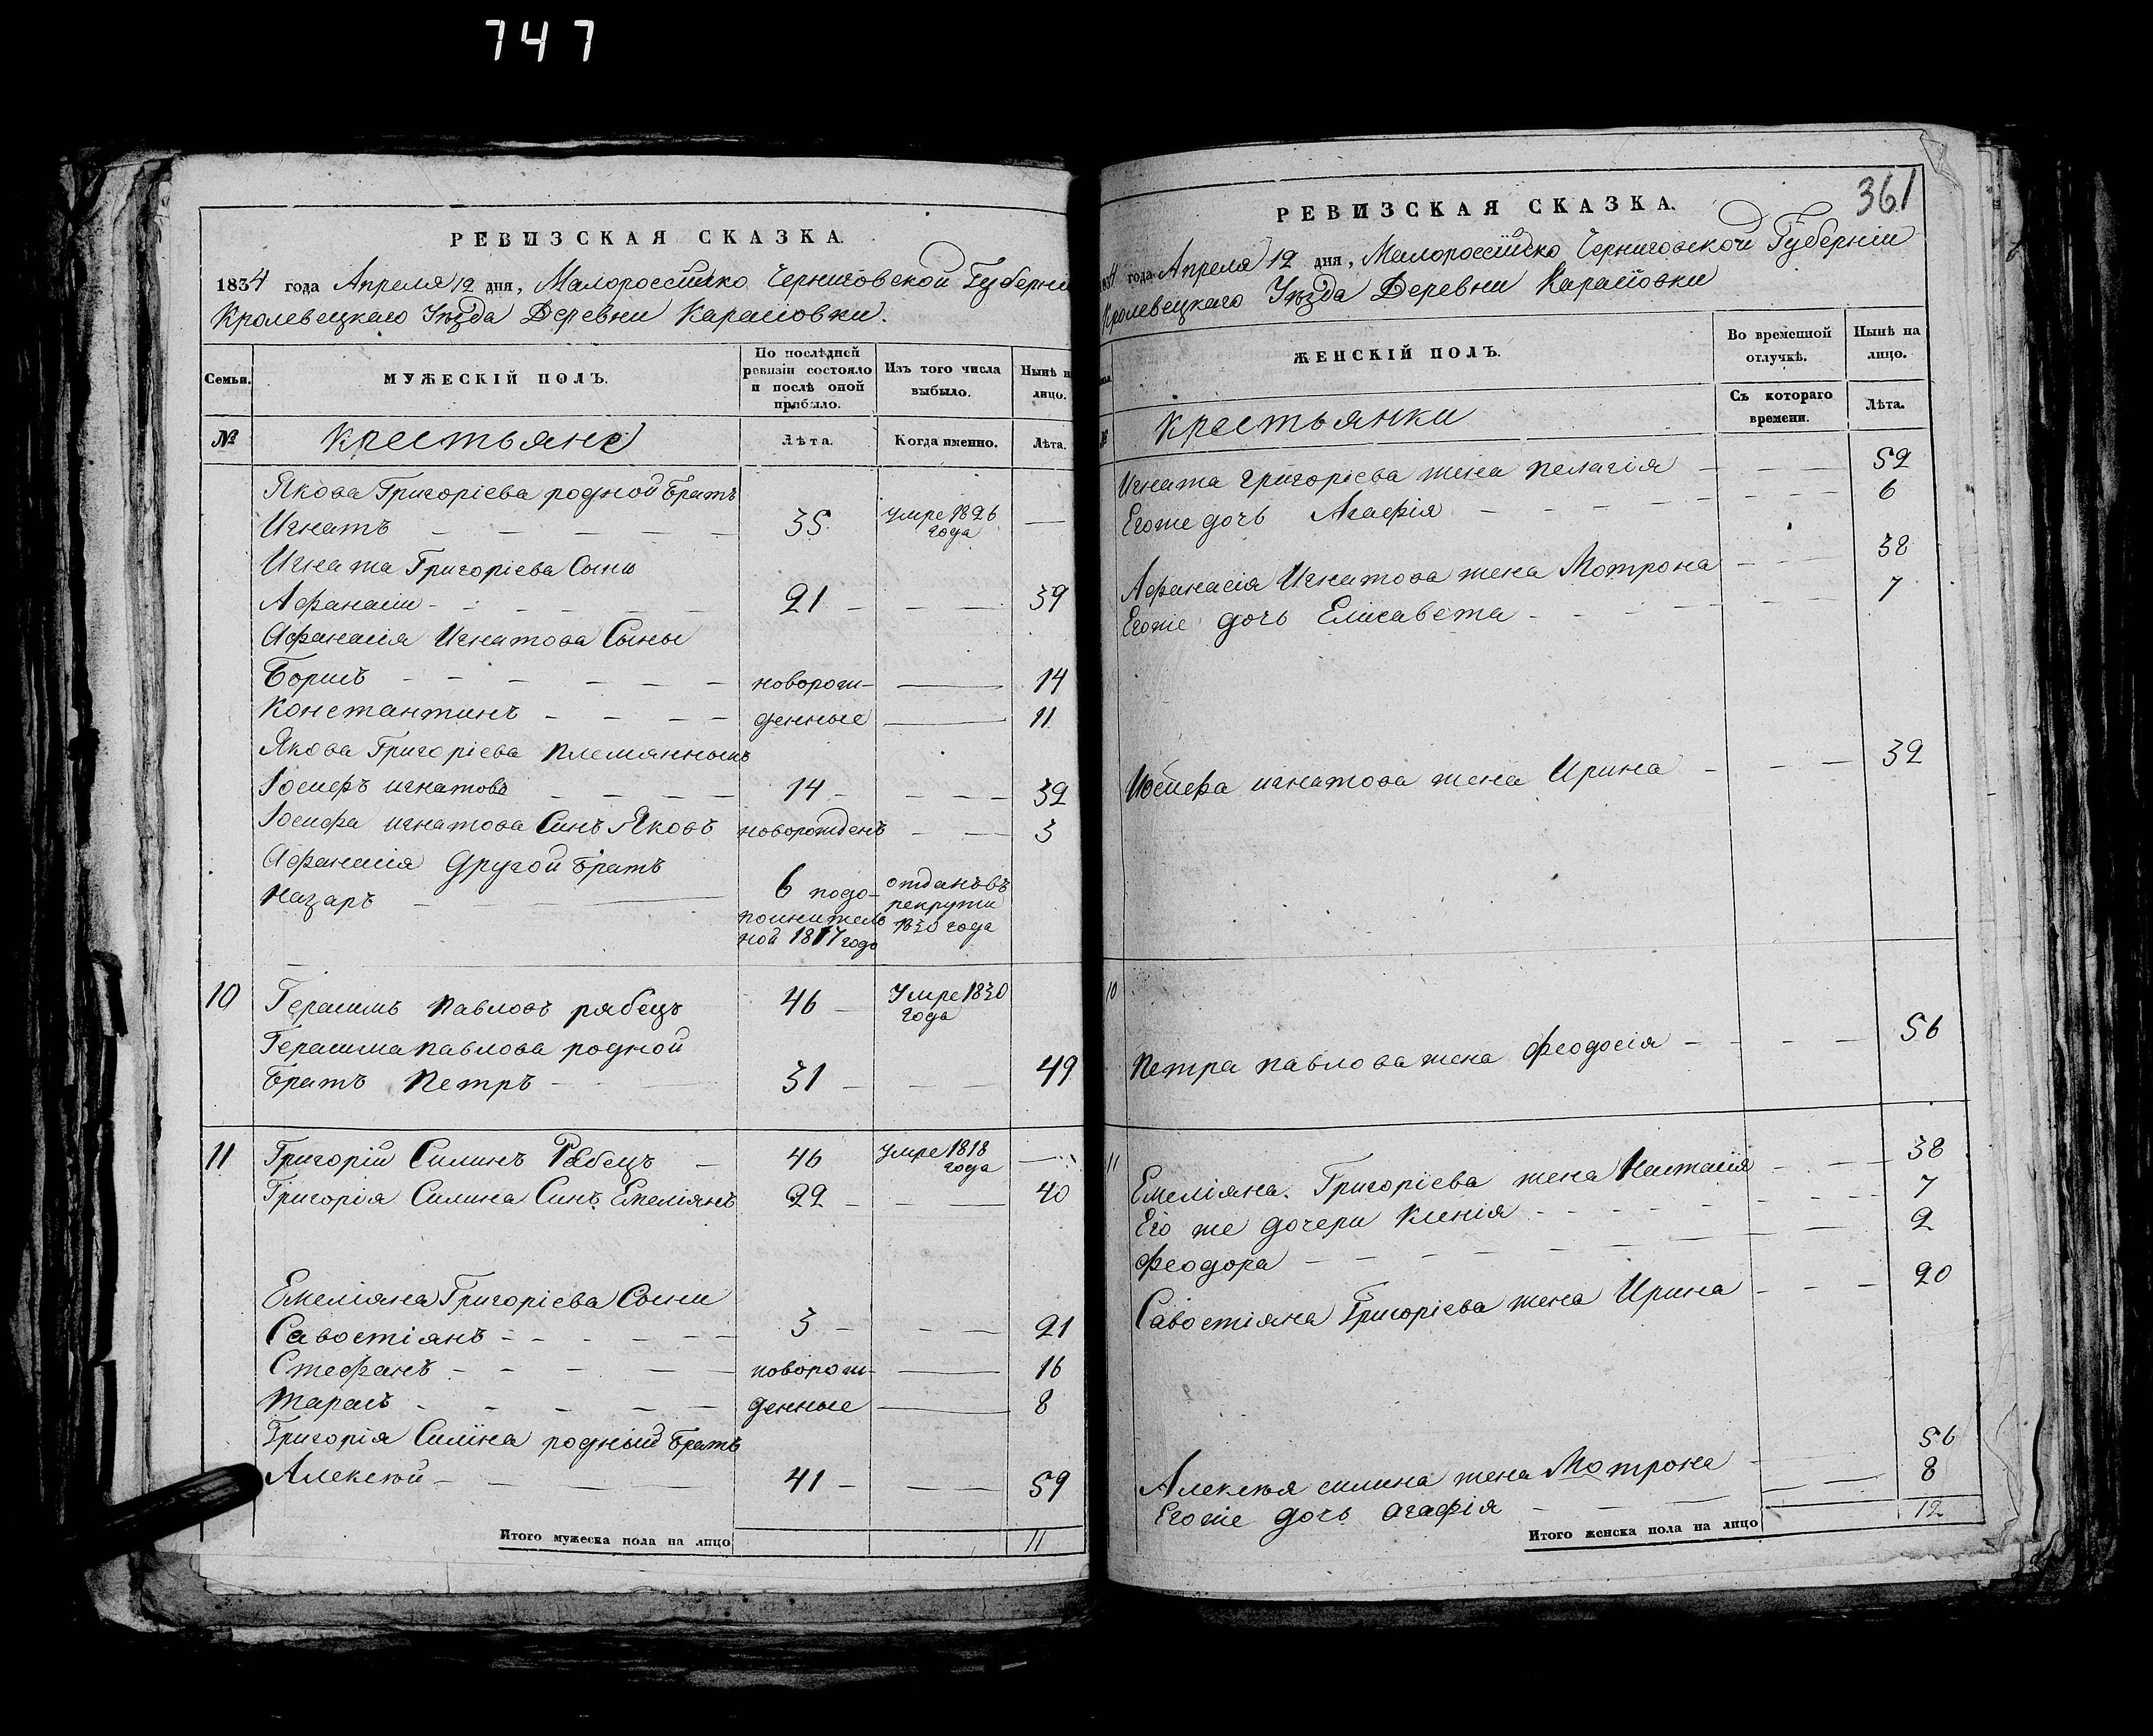 747
РЕВИЗСКАЯ СКАЗКА.
1834 года Апреля 12 дня, Малороссійско Черниговской Губерніи
Кролевецкаго Уѣзда Деревни
Семьи.
МУЖЕСКІЙ ПОЛЪ.
По послѣдней ревизіи состояло и послѣ оной прибыло.
Изъ того числа выбыло.
Нынѣ на лицо.
№
Крестьяне
Лѣта.
Когда именно.
Лѣта.
Якова Григоріева родной Братъ
Игнатъ 35 умре 1826 года
Игната Григоріева Сыни
Афанасіи 21 39
Афанасія Игнатова Сыны
Борисъ новорож- 14
Константинъ денные 11
Якова Григоріева племянныкъ
Іосифъ игнатовъ 14 32
Іосифа игнатова Синъ Яковъ новорожденъ 3
Афанасія Другой Братъ
Назаръ 6 подо- отданъ въ
полнитель рекрути
ной 1817 года 1830 года
10 Герасимъ павловъ рябецъ 46 Умре 1830 года
Герасима павлова родной
Братъ Петръ 31 49
11 Григорій Силинъ Рябецъ 46 Умре 1818 года
Григорія Силина Синъ Емеліянъ 22 40
Емеліяна Григоріева Сыни
Савостіянъ 3 21
Стефанъ новорож- 16
Тарасъ денные 8
Григорія Силина родный Братъ
Алексѣй 41 59
Итого мужеска пола на лицо 11
361
РЕВИЗСКАЯ СКАЗКА.
1834 года Апреля 12 дня, Малороссійско Черниговской Губерніи
Кролевецкаго Уѣзда Деревни
ЖЕНСКІЙ ПОЛЪ.
Во временной отлучкѣ.
Нынѣ на лицо.
№
Крестьянки
Съ котораго времени.
Лѣта.
Игната григоріева жена пелагія 52
Егоже дочь Агафія 6
Афанасія Игнатова жена Мотрона 38
Егоже дочь Елисавета 7
Иосифа игнатова жена Ирина 32
10
Петра павлова жена феодосія 56
11 Емеліяна Григоріева жена Настасія 38
Его же дочери Ксенія 7
феодора 2
Савостіяна Григоріева жена Ирина 20
Алексѣя силина жена Мотрона 56
Егоже дочь агафія 8
Итого женска пола на лицо 12